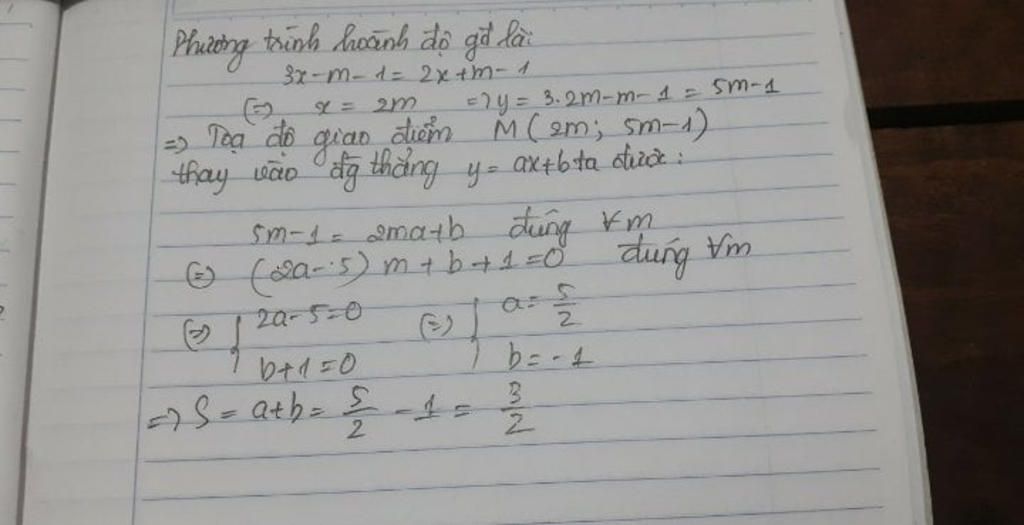 Phương trình hoành độ gđ là:
3x-m-1 = 2x+m-1
(=) x = 2m => y = 3.2m-m-1 = 5m-1
=> Toạ độ giao điểm M(2m; 5m-1)
thay vào đg thẳng y = ax+b ta được:
5m-1 = 2ma+b đúng ∀m
(=) (2a-5)m+b+1=0 đúng ∀m
(=) { 2a-5=0 (=) { a = 5/2
b+1=0 b = -1
=> S = a+b = 5/2 - 1 = 3/2